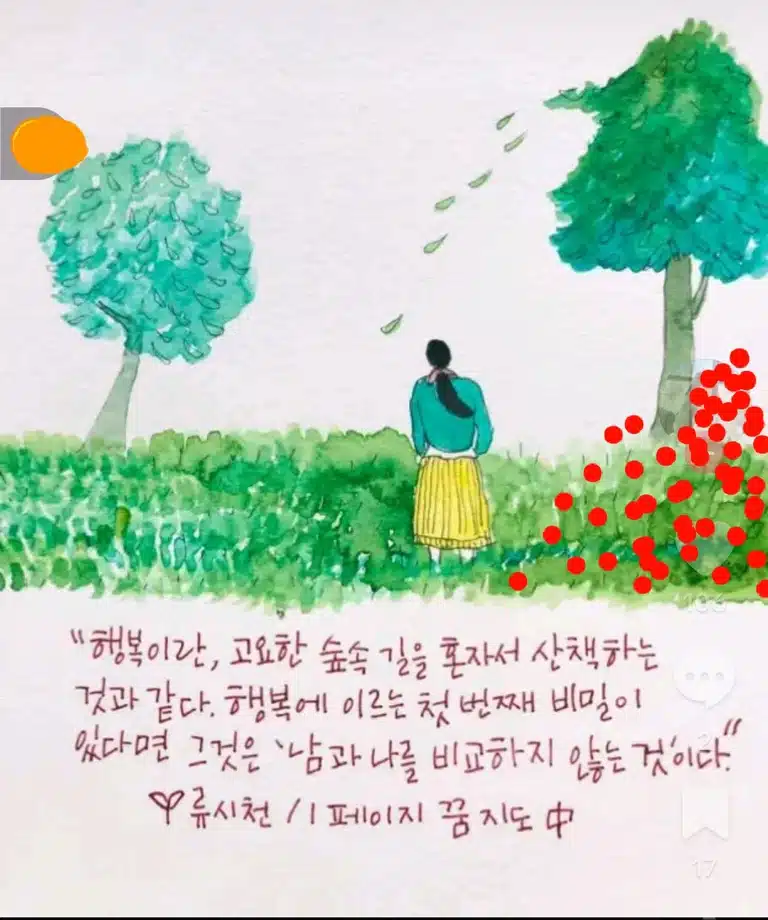 "행복이란, 고요한 숲속 길을 혼자서 산책하는
것과 같다. 행복에 이르는 첫 번째 비밀이
있다면 그것은 '남과 나를 비교하지 않는 것'이다."
류시천 / 1 페이지 꿈 지도 中
2
17